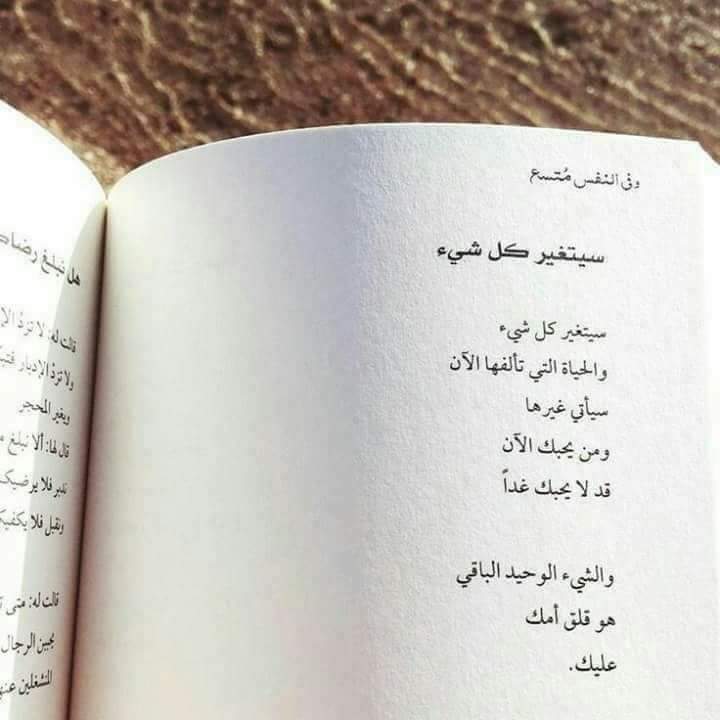 وفي النفس مُتسع
سيتغير كل شيء
سيتغير كل شيء
والحياة التي تألفها الآن
سيأتي غيرها
ومن يحبك الآن
قد لا يحبك غداً
والشيء الوحيد الباقي
هو قلق أمك
عليك.
هل نبلغ
قالت له: لا تردُ
ولا تردُ الإدبار
ويغير المحجر
قال لها: ألا نبلغ
ندبر فلا يرضيك
ونقبل فلا يكفيك
قالت له: متى
بجبين الرجال